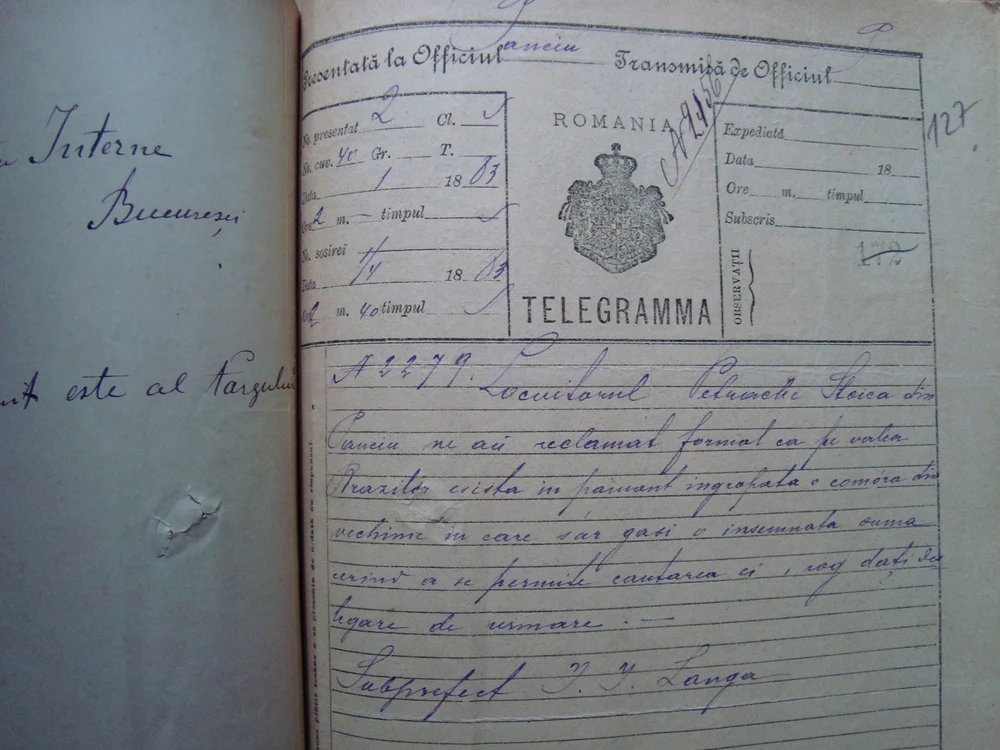 Interne
Bucuresci
este al targului
Presentată la Officiul Panciu
Transmisă de Officiul P
No. presentat 2 Cl.
No. cuv. 40 Gr. T.
Data 1 18 83
Ore 2 m. — timpul
No. sosirei
Data 1/4 18 83
Ore 2 m. 40 timpul
ROMANIA
TELEGRAMMA
Expediată
Data 18
Ore m. timpul
Subscris
OBSERVAȚII
127
172
N 2279. Locuitorul Petrache Stoica din
Panciu ne au reclamat formal ca pe valea
Brazilor esista in pamant ingropata o comóra din
vechime in care s'ar gasi o insemnata suma
cerind a se permite cautarea ei, rog dați des
legare de urmare. —
Subprefect I. I. Langa